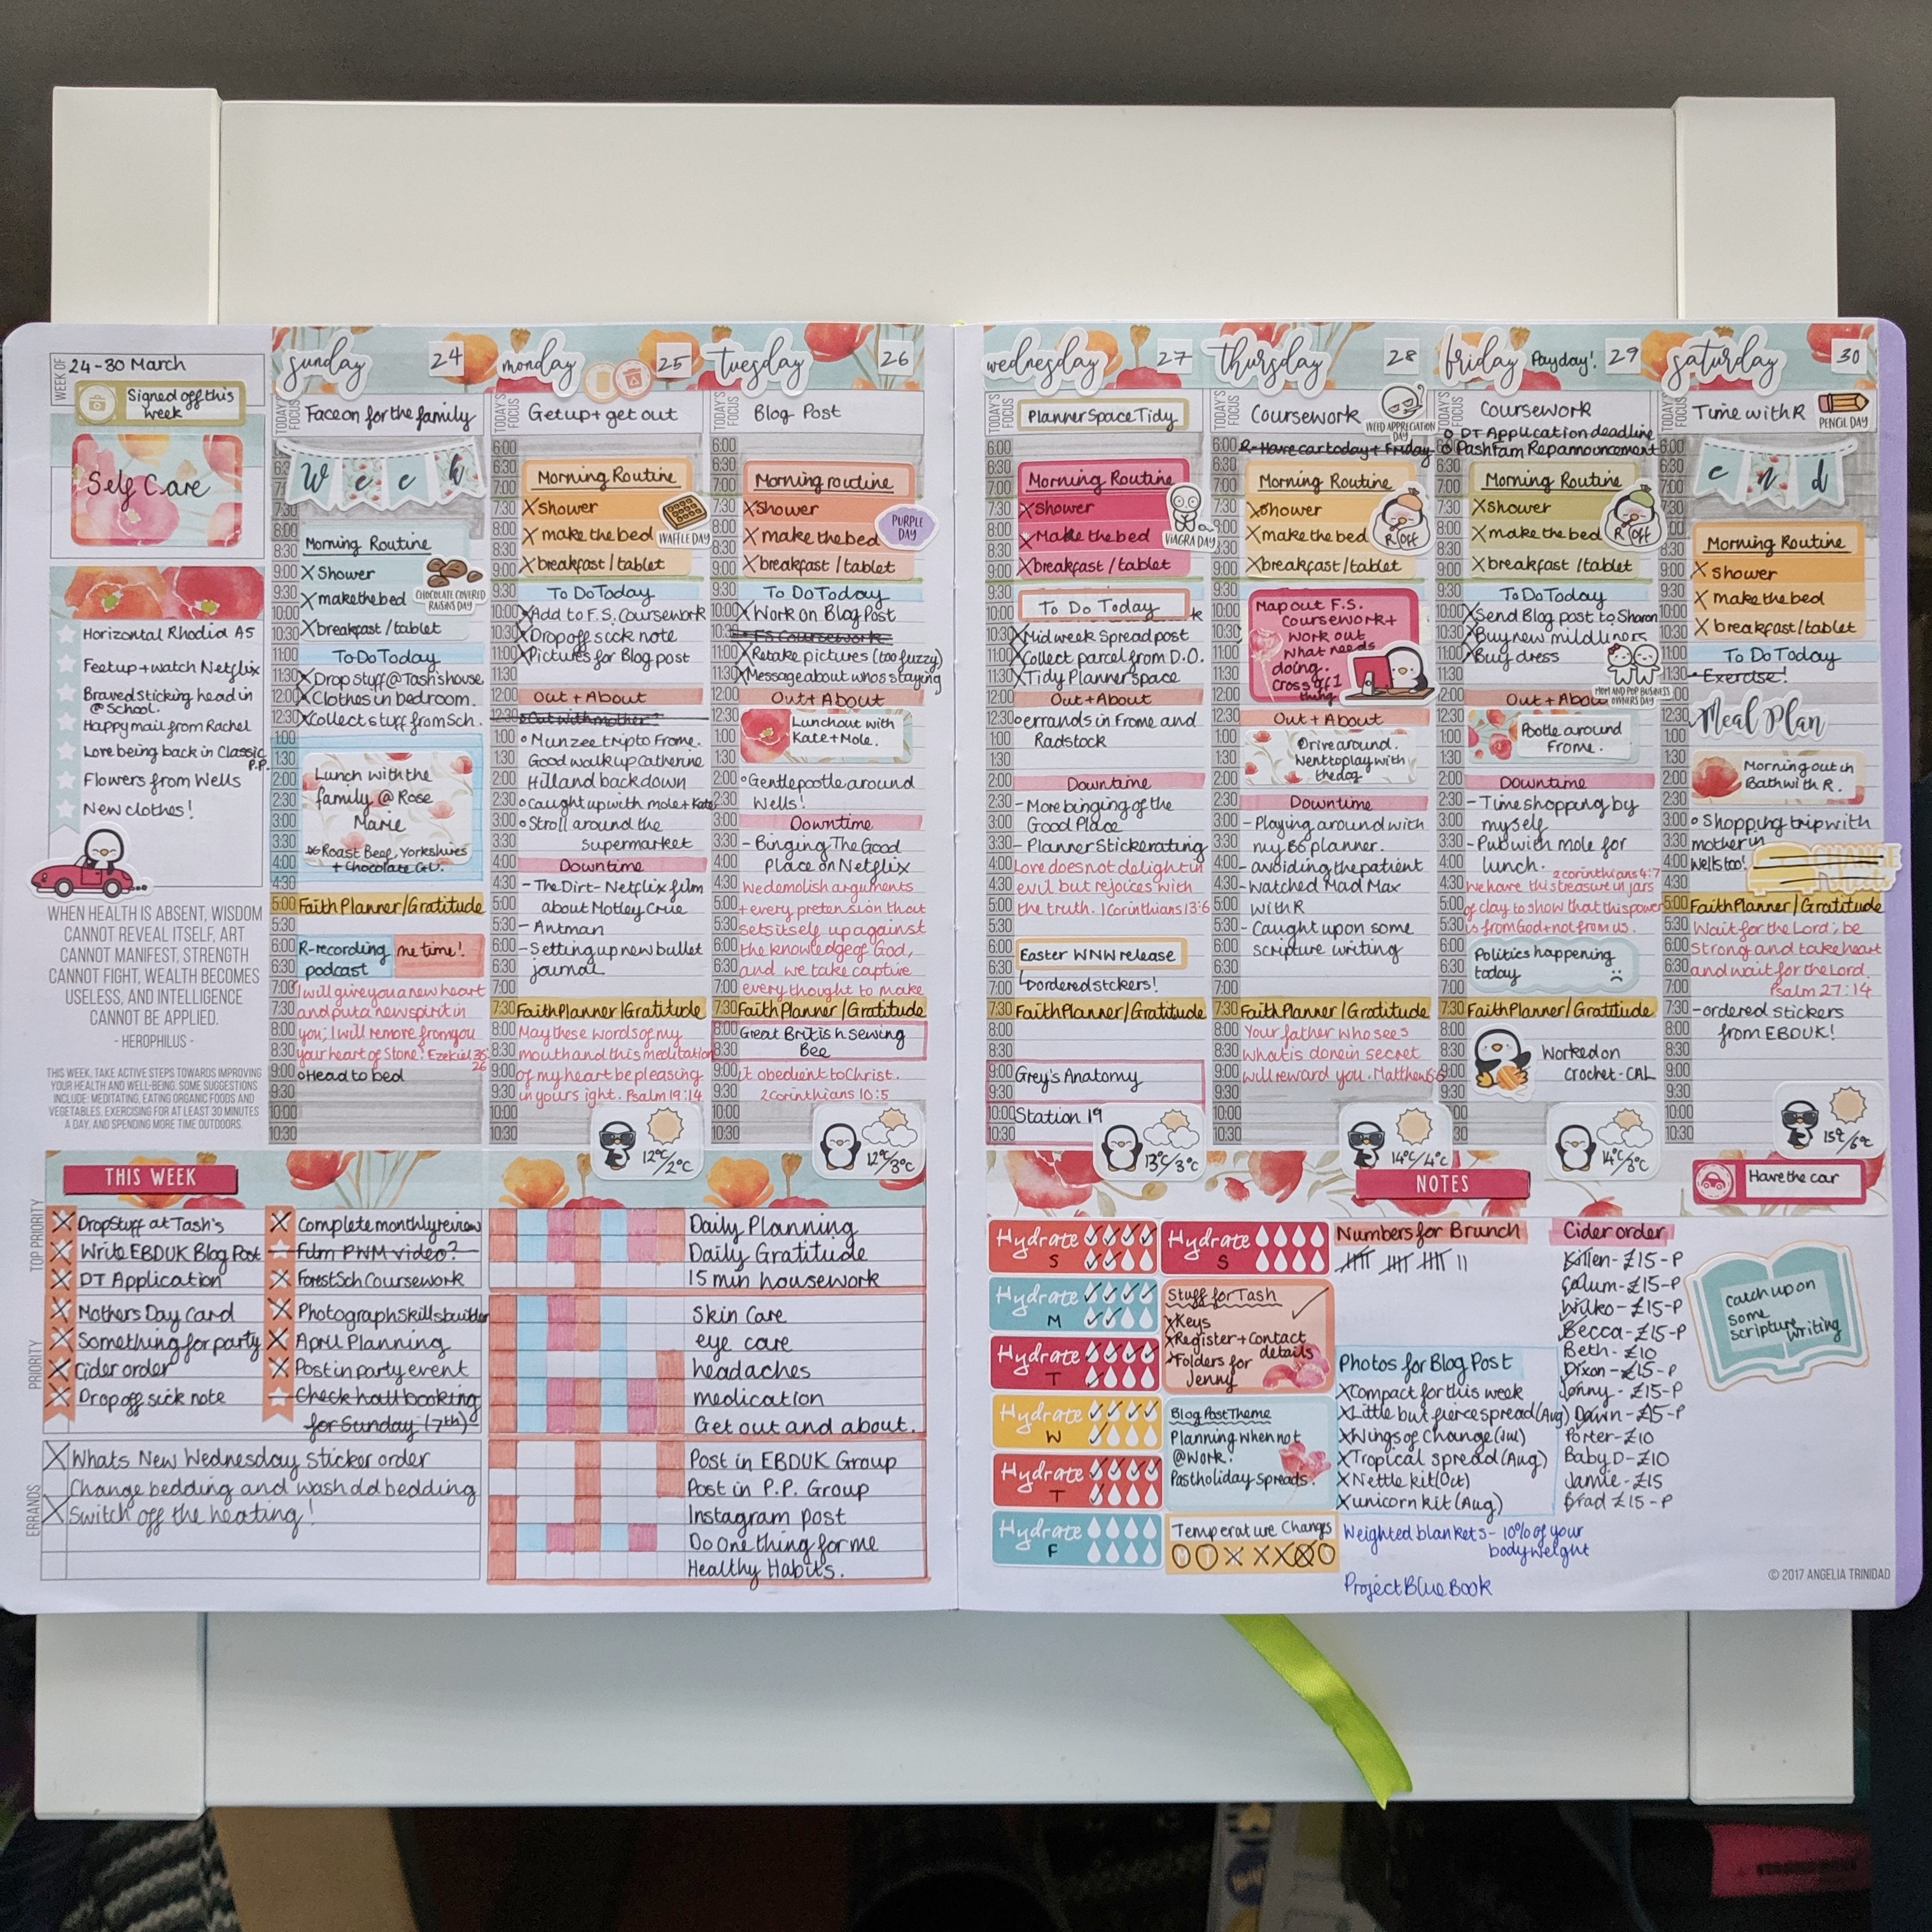 WEEK OF
24-30 March
Signed off this
week
Self Care
Horizontal Rhodia A5
Feet up + watch Netflix
Braved sticking head in
@ School.
Happy mail from Rachel
Love being back in Classic
P.P.
Flowers from Wells
New clothes!
WHEN HEALTH IS ABSENT, WISDOM
CANNOT REVEAL ITSELF, ART
CANNOT MANIFEST, STRENGTH
CANNOT FIGHT, WEALTH BECOMES
USELESS, AND INTELLIGENCE
CANNOT BE APPLIED.
- HEROPHILUS -
THIS WEEK, TAKE ACTIVE STEPS TOWARDS IMPROVING
YOUR HEALTH AND WELL-BEING. SOME SUGGESTIONS
INCLUDE: MEDITATING, EATING ORGANIC FOODS AND
VEGETABLES, EXERCISING FOR AT LEAST 30 MINUTES
A DAY, AND SPENDING MORE TIME OUTDOORS.
sunday 24
TODAY'S FOCUS
Face on for the family
Week
Morning Routine
X Shower
X make the bed
CHOCOLATE COVERED
RAISINS DAY
X breakfast / tablet
To Do Today
X Drop stuff @ Tash's house
X Clothes in bedroom.
X Collect stuff from Sch.
Lunch with the
family @ Rose
Marie
Roast Beef, Yorkshires
+ Chocolate
Faith Planner / Gratitude
R-recording
podcast
me time!
I will give you a new heart
and put a new spirit in
you; I will remove from you
your heart of stone. Ezekiel 36
26
Head to bed
monday 25
TODAY'S FOCUS
Get up + get out
Morning Routine
X shower
X make the bed
WAFFLE DAY
X breakfast / tablet
To Do Today
X Add to F.S. Coursework
X Drop off sick note
X Pictures for Blog post
Out + About
Out with mother?
Munzee trip to Frome.
Good walk up Catherine
Hill and back down
Caught up with mole + Kate
Stroll around the
supermarket
Downtime
- The Dirt - Netflix film
about Motley Crue
- Antman
- Setting up new bullet
journal
Faith Planner / Gratitude
May these words of my
mouth and this meditation
of my heart be pleasing
in your sight. Psalm 19:14
12°C/2°C
tuesday 26
TODAY'S FOCUS
Blog Post
Morning routine
X shower
X make the bed
PURPLE
DAY
X breakfast / tablet
To Do Today
X Work on Blog Post
FS Coursework
X Retake pictures (too fuzzy)
X Message about whos staying
Out + About
Lunch out with
Kate + Mole.
Gentle pootle around
Wells!
Downtime
- Binging The Good
Place on Netflix
We demolish arguments
+ every pretension that
sets itself up against
the knowledge of God,
and we take captive
every thought to make
Faith Planner / Gratitude
Great British Sewing
Bee
it obedient to Christ.
2 Corinthians 10:5
12°C/3°C
wednesday 27
TODAY'S FOCUS
Planner Space Tidy
Morning Routine
X shower
X Make the bed
VIAGRA DAY
X breakfast / tablet
To Do Today
X Midweek Spread post
X Collect parcel from D.O.
X Tidy Planner Space
Out + About
errands in Frome and
Radstock
Downtime
- More binging of the
Good Place
- Planner Stickerating
Love does not delight in
evil but rejoices with
the truth. 1 Corinthians 13:6
Easter WNW release
ordered stickers!
Faith Planner / Gratitude
Grey's Anatomy
Station 19
13°C/3°C
thursday 28
TODAY'S FOCUS
Coursework
WEED APPRECIATION
DAY
R-Have car today + Friday
Morning Routine
X shower
X make the bed
R Off
X breakfast / tablet
Map out F.S.
Coursework +
work out
what needs
doing.
Cross off 1
thing
Out + About
Drive around.
Went to play with
the dog
Downtime
- Playing around with
my B6 planner.
- avoiding the patient
- Watched Mad Max
with R
- Caught up on some
scripture writing
Faith Planner / Gratitude
Your father who sees
what is done in secret
will reward you. Matthew 6:6
14°C/4°C
friday Payday! 29
TODAY'S FOCUS
Coursework
DT Application deadline
PashFam Rep announcement
Morning Routine
X shower
X make the bed
R Off
X breakfast / tablet
To Do Today
X Send Blog post to Sharon
X Buy new mildliners
X Buy dress
MOM AND POP BUSINESS
OWNERS DAY
Out + About
Pootle around
Frome.
Downtime
- Time shopping by
myself
- Pub with mole for
lunch.
2 corinthians 4:7
We have this treasure in jars
of clay to show that this power
is from God + not from us.
Politics happening
today
Faith Planner / Gratitude
Worked on
Crochet - CAL
14°C/3°C
saturday 30
TODAY'S FOCUS
Time with R
PENCIL DAY
end
Morning Routine
X shower
X make the bed
X breakfast / tablet
To Do Today
Exercise!
Meal Plan
Morning out in
Bath with R.
Shopping trip with
mother in
Wells too!
CHANGE
Faith Planner / Gratitude
Wait for the Lord; be
strong and take heart
and wait for the Lord.
Psalm 27:14
- ordered stickers
from EBDUK!
15°C/6°C
THIS WEEK
TOP PRIORITY
X Drop Stuff at Tash's
X Write EBDUK Blog Post
X DT Application
X Complete monthly review
Film PWM video?
X Forest Sch Coursework
PRIORITY
X Mothers Day Card
X Something for party
X Cider order
X Drop off sick note
X Photograph skills builder
X April Planning
X Post in party event
Check hall booking
for Sunday (7th)
ERRANDS
X Whats New Wednesday Sticker order
Change bedding and wash old bedding
X Switch off the heating!
Daily Planning
Daily Gratitude
15 min housework
Skin Care
eye care
headaches
medication
Get out and about.
Post in EBDUK Group
Post in P.P. Group
Instagram post
Do One thing for me
Healthy Habits.
NOTES
Have the car
Hydrate S
Hydrate M
Hydrate T
Hydrate W
Hydrate T
Hydrate F
Hydrate S
Stuff for Tash
X Keys
X Register + Contact
details
X Folders for
Jenny
Blog Post Theme
Planning when not
@ Work.
Past holiday spreads.
Temperature Changes
Numbers for Brunch
Photos for Blog Post
X Compact for this week
X Little but fierce spread (Aug)
X Wings of Change (Jul)
X Tropical spread (Aug)
X Nettle kit (Oct)
X unicorn kit (Aug)
Weighted blankets - 10% of your
bodyweight
Project Blue Book
Cider order
Kitten - £15 - P
Calum - £15 - P
Wilko - £15 - P
Becca - £15 - P
Beth - £10
Dixon - £15 - P
Jonny - £15 - P
Dawn - £15 - P
Porter - £10
Baby D - £10
Jamie - £15
Brad £15 - P
Catch up on
some
scripture writing
© 2017 ANGELIA TRINIDAD